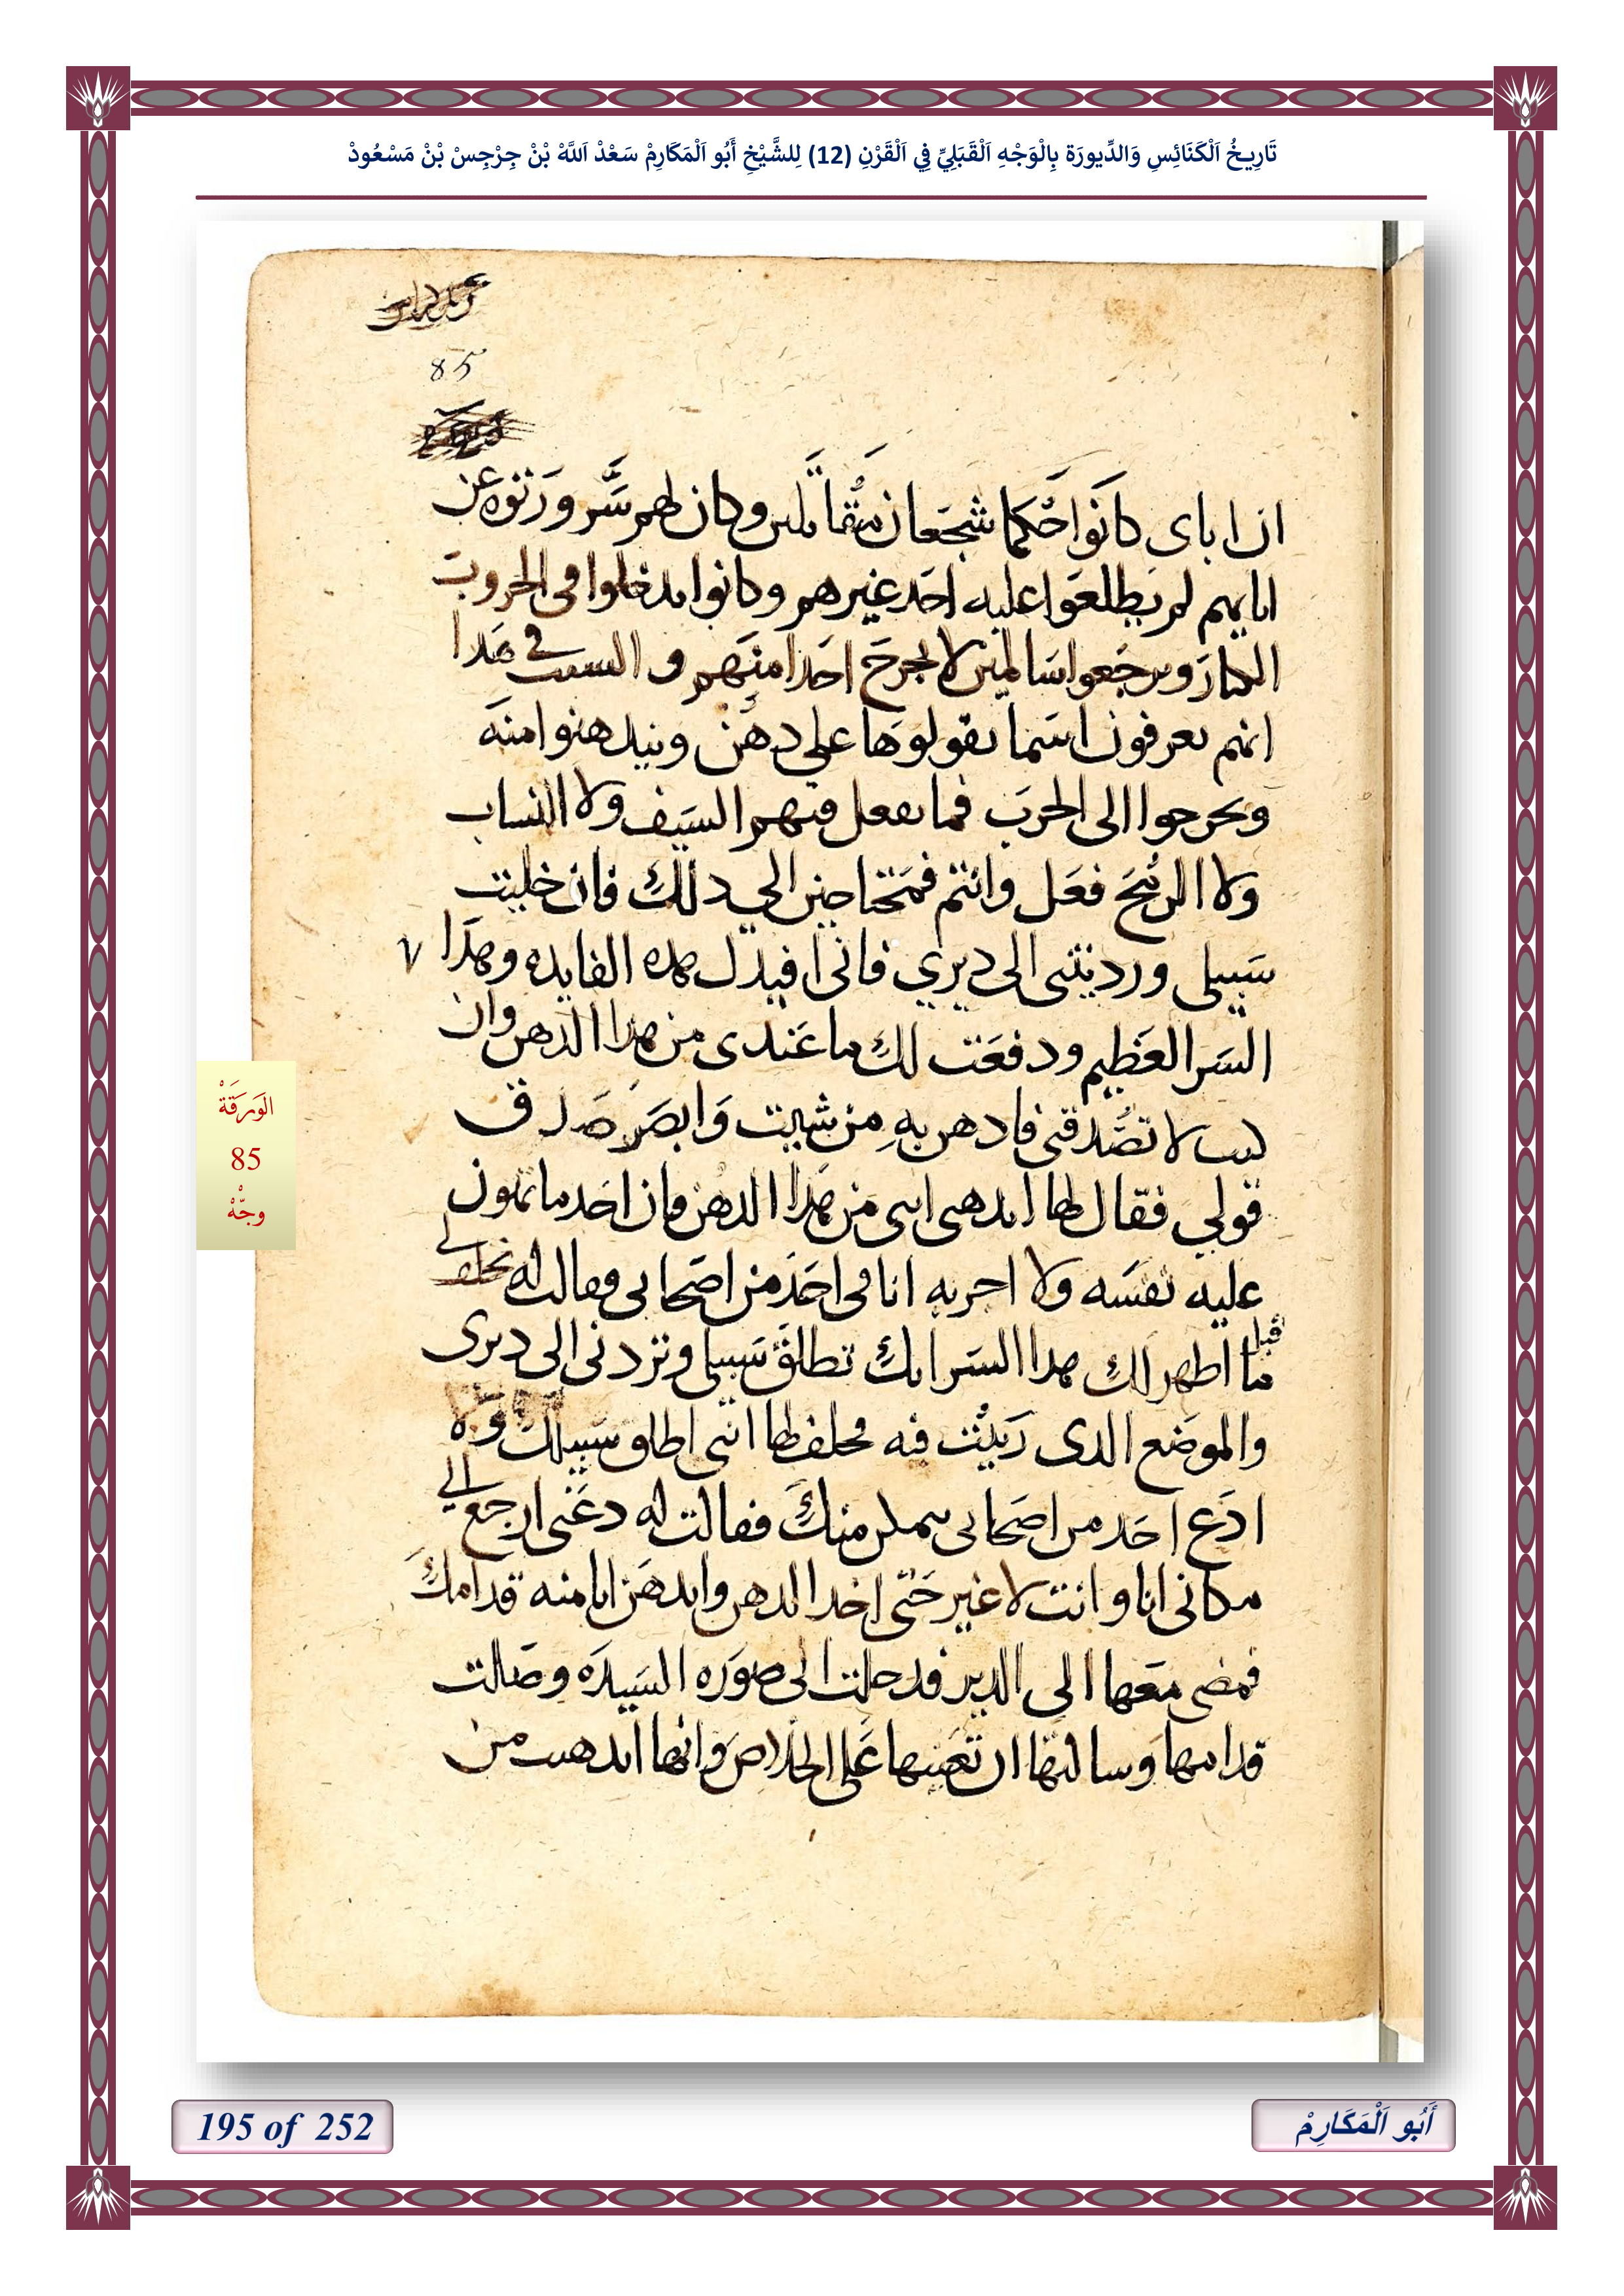 تَارِيخُ اَلْكَنَائِسِ وَالدِّيورَة بِالْوَجْهِ اَلْقَبَلِيِّ فِي اَلْقَرْنِ (12) لِلشَّيْخِ أَبُو اَلْمَكَارِمْ سَعْدْ اَللَّهْ بْنْ جِرْجِسْ بْنْ مَسْعُودْ
85
ان اباى كانوا حكما شجعان مقاتلين وكان لهم سر ورتوه عن
ابايهم لم يطلعوا عليه احد غيرهم وكانوا يدخلوا فى الحروب
الكبار ويرجعوا سالمين لا يجرح احدا منهم و السبب فى هدا
انهم يعرفون اسما يقولوها على دهن ويتدهنوا منه
ويخرجوا الى الحرب فما يفعل فيهم السيف ولا النشاب
ولا الرمح فعل وانتم فمحتاجين الى دلك فان خليت
سبيلى ورديتنى الى ديرى فانى افيدك هده الفايده وهدا
السر العظيم ودفعت لك ما عندى من هدا الدهن وان
كنت لا تصدقنى فادهن به من شيت وابصر صدق
قولى فقال لها اندهنى انتى من هدا الدهن فان احد ما يهون
عليه نفسه ولا اجربه انا فى احد من اصحابى فقالت له تحلف لى
قبل ما اظهر لك هدا السر انك تطلق سبيلى وتردنى الى ديرى
والموضع الدى ربيت فيه فحلف لها اننى اطلق سبيلك ولا
ادع احد من اصحابى يتمكن منك فقالت له دعنى ارجع الى
مكانى انا وانت لا غير حتى اخد الدهن واندهن انا منه قدامك
فمضى معها الى الدير فدخلت الى صوره السيده وصلت
قدامها وسالتها ان تعينها على الخلاص وانها اندهنت من
الوَرَقَةْ
85
وجّهْ
195 of 252
أَبُو اَلْمَكَارِمْ